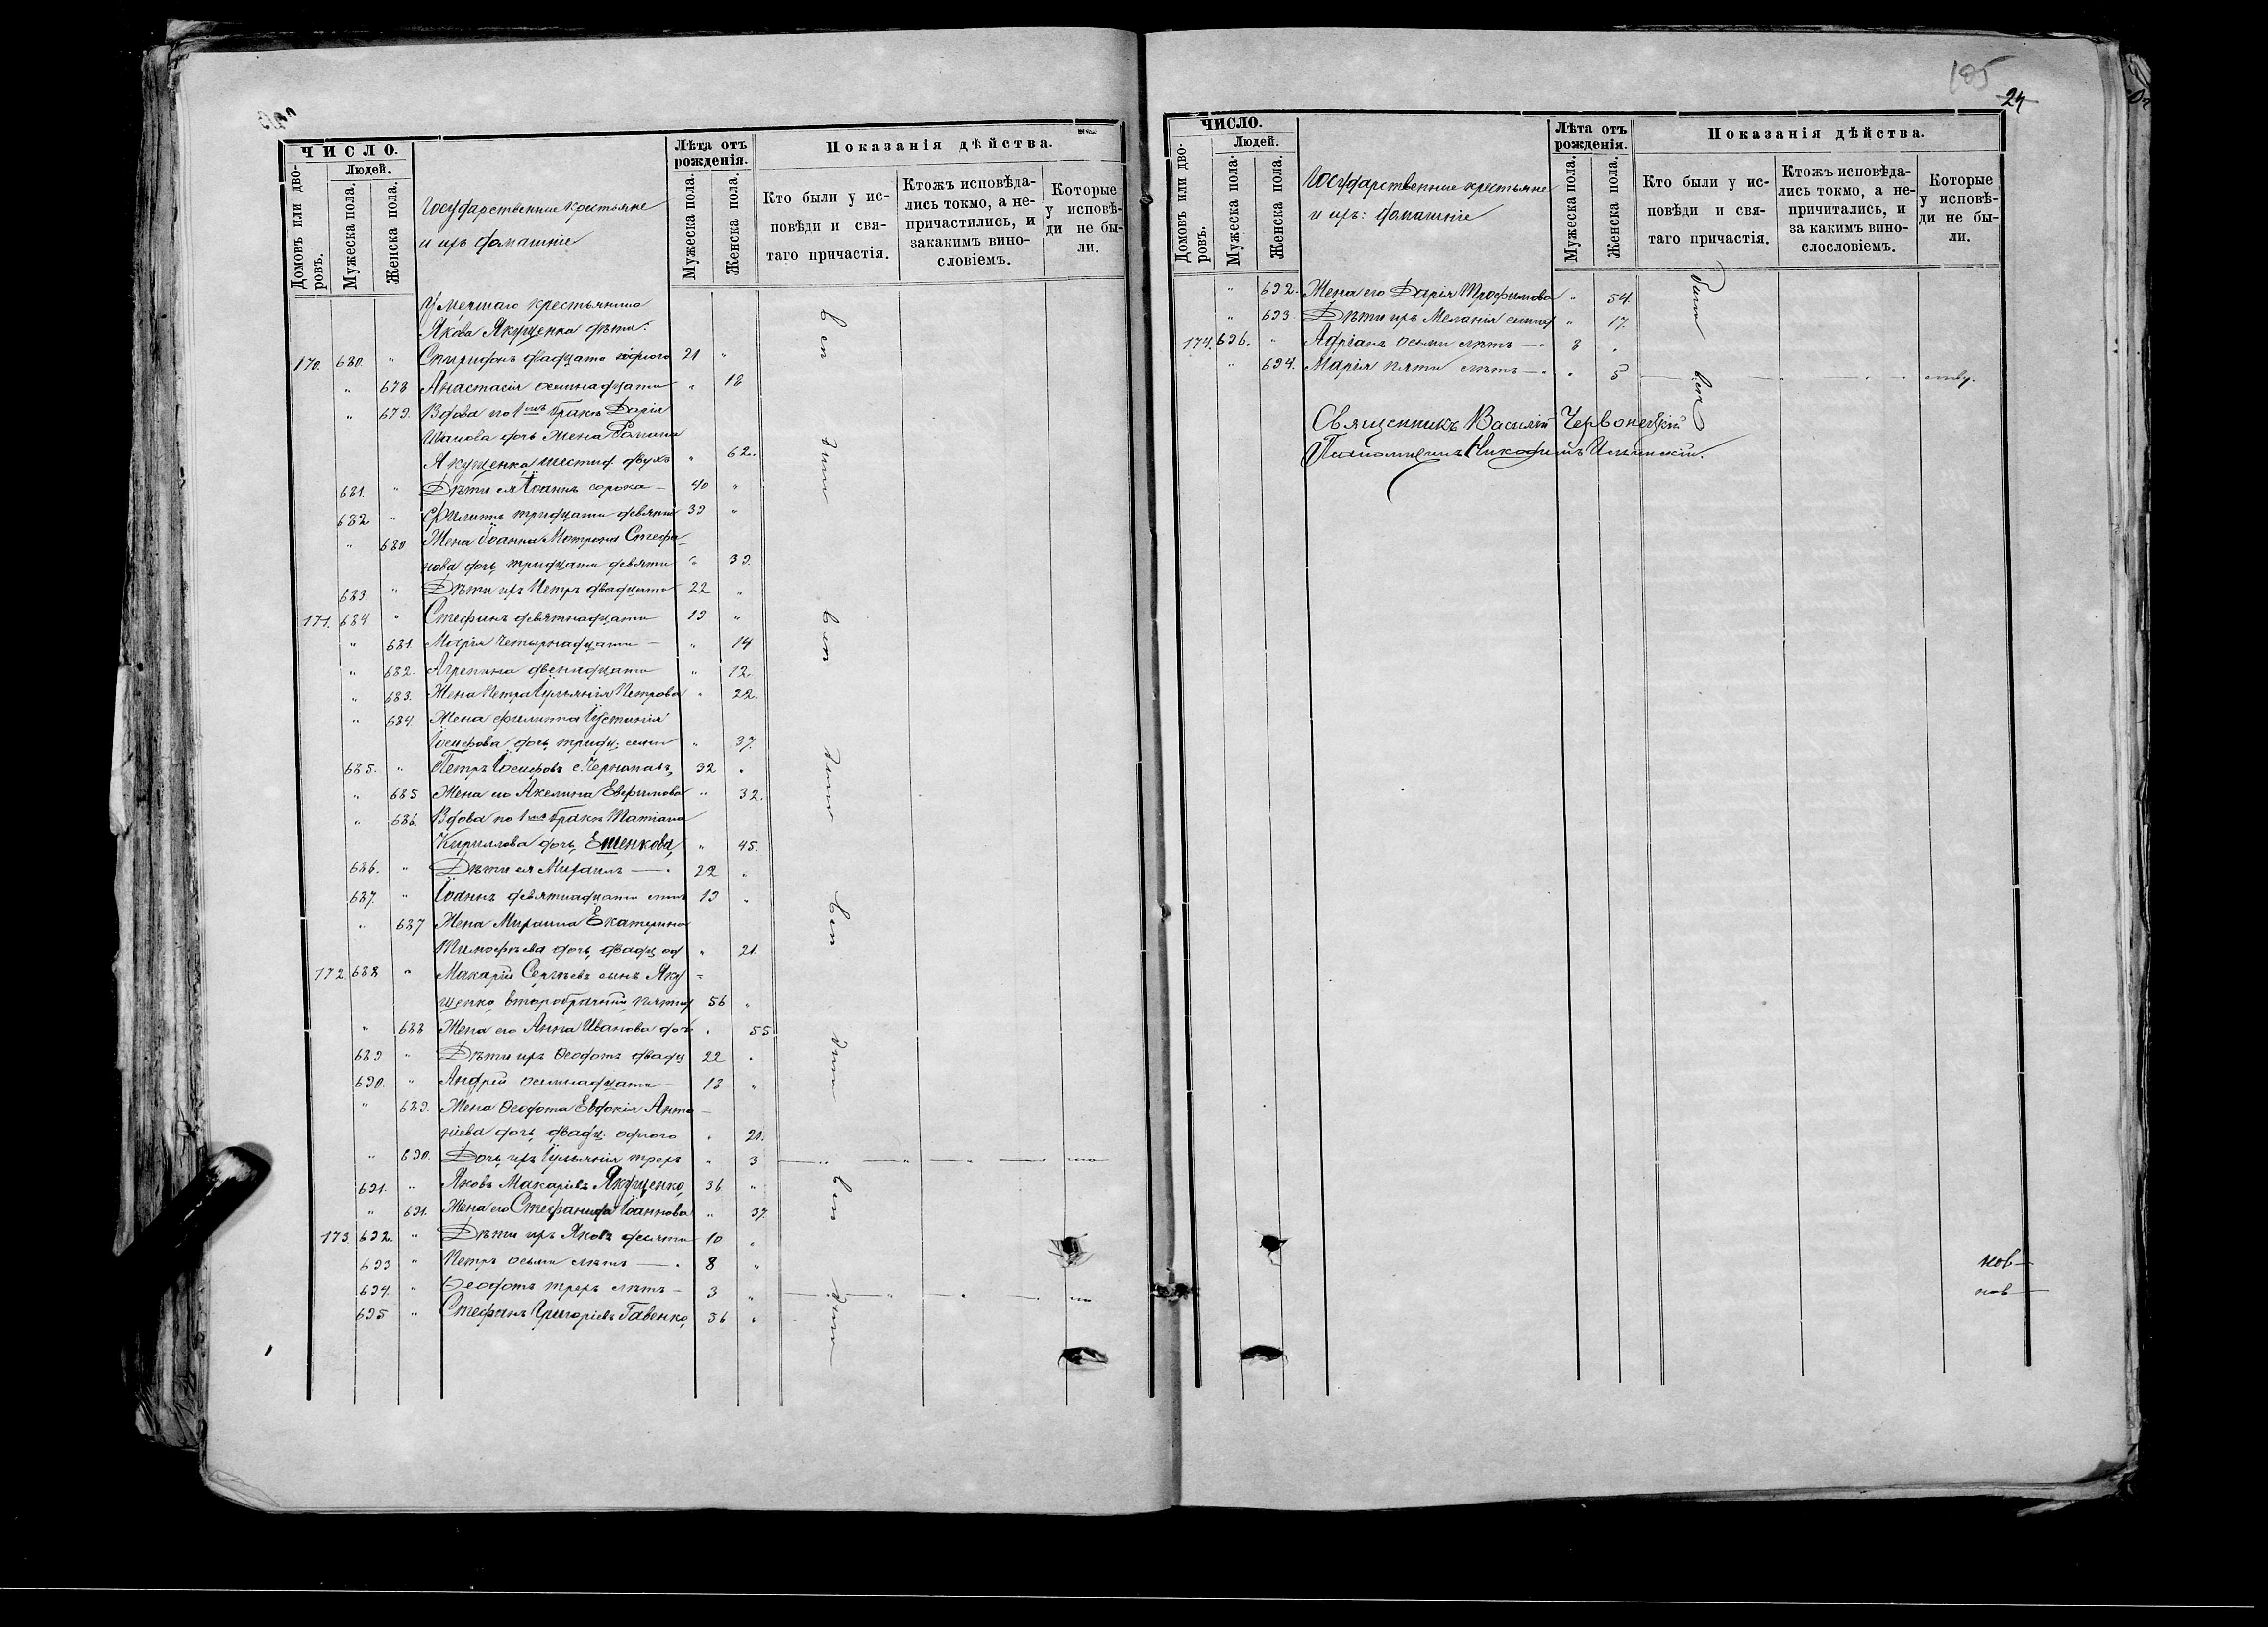 ЧИСЛО.
Людей.
Домовъ или дворовъ.
Мужеска пола.
Женска пола.
Государственные крестьяне
и ихъ домашніе
Лѣта отъ
рожденія.
Мужеска пола.
Женска пола.
Показанія дѣйства.
Кто были у ис-
повѣди и свя-
таго причастія.
Ктожъ исповѣда-
лись токмо, а не-
причастились, и
закакимъ вино-
словіемъ.
Которые
у исповѣ-
ди не бы-
ли.
Умершаго крестьянина
Якова Якущенка дѣти:
170. 680. " Спиридонъ двадцати одного 21 "
" 678 Анастасія осмнадцати " 18
" 679. Вдова по 1мъ бракѣ Дарія
Иванова дочь жена Романа
Якущенка шестид. двухъ " 62.
681. " Дѣти ея Іоаннъ сорока — 40 "
682 " Филиппъ тридцати девяти 39 "
" 680 Жена Іоанна Мотрона Стефа-
нова дочь тридцати девяти " 39.
683. " Дѣти ихъ Петръ двадцати 22 "
171. 684 " Стефанъ девятнадцати 19 "
" 681. Марія четырнадцати — " 14
" 682. Агрепина двенадцати " 12.
" 683. Жена Петра Іульянія Петрова " 22.
" 684. Жена Филиппа Іустинія
Іосифова дочь тридц. семи " 37.
685. " Петръ Іосифовъ с. 32 "
" 685 Жена его Акелина Евфимова " 32.
" 686. Вдова по 1мъ бракѣ Татіана
Кириллова дочь Ешенкова, " 45.
686. " Дѣти ея Михаилъ — 22 "
687. " Іоаннъ девятнадцати лѣтъ 19 "
" 687 Жена Михаила Екатерина
Тимофѣева дочь двадц. од " 21.
172. 688 " Макарій Сергѣевъ сынъ Яку-
щенко, второбрачный, пятид 56 "
" 688 Жена его Анна Иванова доч " 55
689 " Дѣти ихъ Ѳеодотъ двадц 22 "
690. " Андрей осмнадцати — 18 "
" 689. Жена Ѳеодота Евдокія Анто-
ніева дочь двадц. одного " 21.
" 690. Дочь ихъ Іульянія трехъ " 3 мо
691. " Яковъ Макаріевъ Якущенко, 36 "
" 691. Жена его Стефанида Іоаннова " 37.
173 692. " Дѣти ихъ Яковъ десяти 10 "
693 " Петръ осьми лѣтъ — 8 "
694. " Ѳеодотъ трехъ лѣтъ — 3 " мо
695 " Стефанъ Григоріевъ Гавенко, 56 "
185
24
ЧИСЛО.
Людей.
Домовъ или дворовъ.
Мужеска пола.
Женска пола.
Государственные крестьяне
и ихъ: домашніе
Лѣта отъ
рожденія.
Мужеска пола.
Женска пола.
Показанія дѣйства.
Кто были у ис-
повѣди и свя-
таго причастія.
Ктожъ исповѣда-
лись токмо, а не-
причитались, и
за какимъ вино-
слословіемъ.
Которые
у исповѣ-
ди не бы-
ли.
" 692. Жена его Дарія Трофимова " 54.
" 693. Дѣти ихъ Меланія семнад " 17.
174. 696. " Адріанъ осьми лѣтъ — 8 "
" 694. Марія пяти лѣтъ — " 5
Священникъ Василій Червонецкій
Псаломщикъ Никодимъ